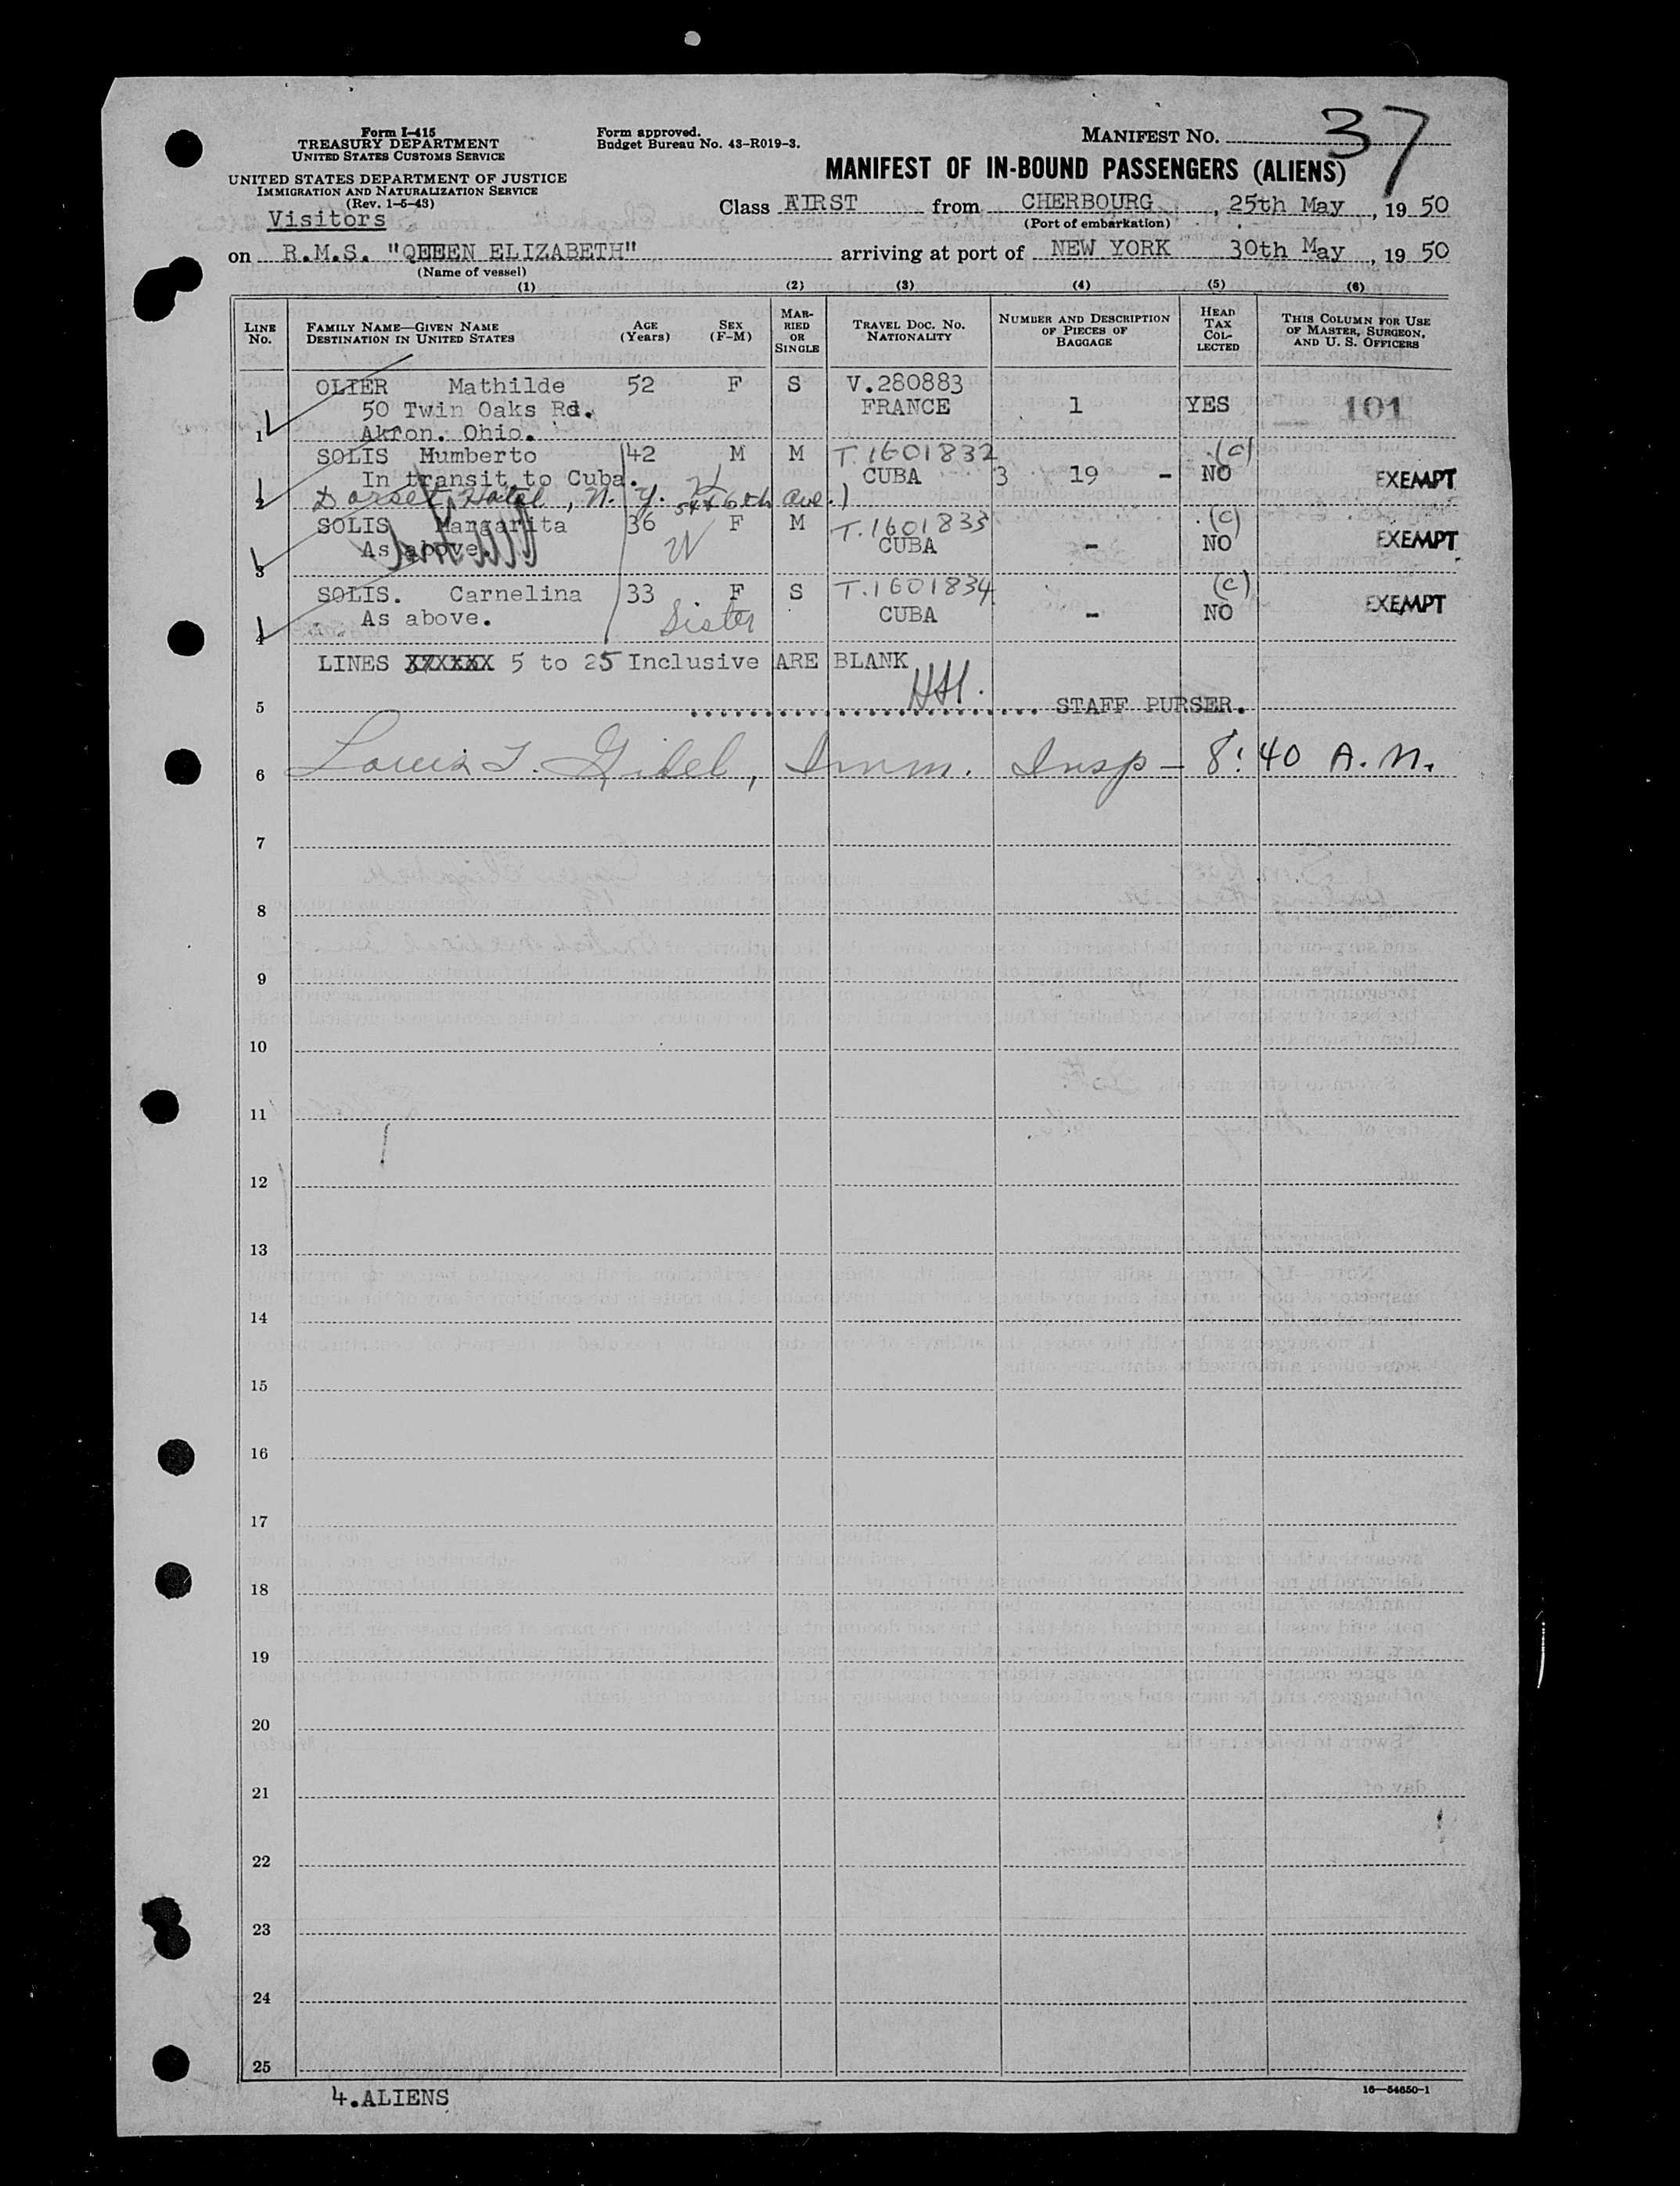 Form I-415
TREASURY DEPARTMENT
UNITED STATES CUSTOMS SERVICE
UNITED STATES DEPARTMENT OF JUSTICE
IMMIGRATION AND NATURALIZATION SERVICE
(Rev. 1-5-43)
Form approved.
Budget Bureau No. 43-R019-3.
MANIFEST NO. 37
MANIFEST OF IN-BOUND PASSENGERS (ALIENS)
Visitors
Class FIRST from CHERBOURG, 25th May, 19 50
(Port of embarkation)
on R.M.S. "QUEEN ELIZABETH" arriving at port of NEW YORK 30th May, 19 50
(Name of vessel)
(1) (2) (3) (4) (5) (6)
LINE No. FAMILY NAME—GIVEN NAME DESTINATION IN UNITED STATES AGE (Years) SEX (F-M) MARRIED OR SINGLE TRAVEL DOC. NO. NATIONALITY NUMBER AND DESCRIPTION OF PIECES OF BAGGAGE HEAD TAX COLLECTED THIS COLUMN FOR USE OF MASTER, SURGEON, AND U. S. OFFICERS
OLIER Mathilde 52 F S V.280883
50 Twin Oaks Rd. FRANCE 1 YES 101
1 Akron. Ohio.
SOLIS Humberto 42 M M T.1601832 (c)
In transit to Cuba. CUBA 3 19 - NO EXEMPT
2 Dorset Hotel, N.Y. 54 & 6th ave.)
SOLIS Margarita 36 F M T.1601833 (c)
As above. W CUBA - NO EXEMPT
3
SOLIS. Carnelina 33 F S T.1601834 (c)
As above. Sister CUBA - NO EXEMPT
4
LINES XXXXXX 5 to 25 Inclusive ARE BLANK
5 STAFF PURSER.
6 Louis T. Gidel, Imm. Insp - 8:40 A.M.
7
8
9
10
11
12
13
14
15
16
17
18
19
20
21
22
23
24
25
4.ALIENS
16—54650-1